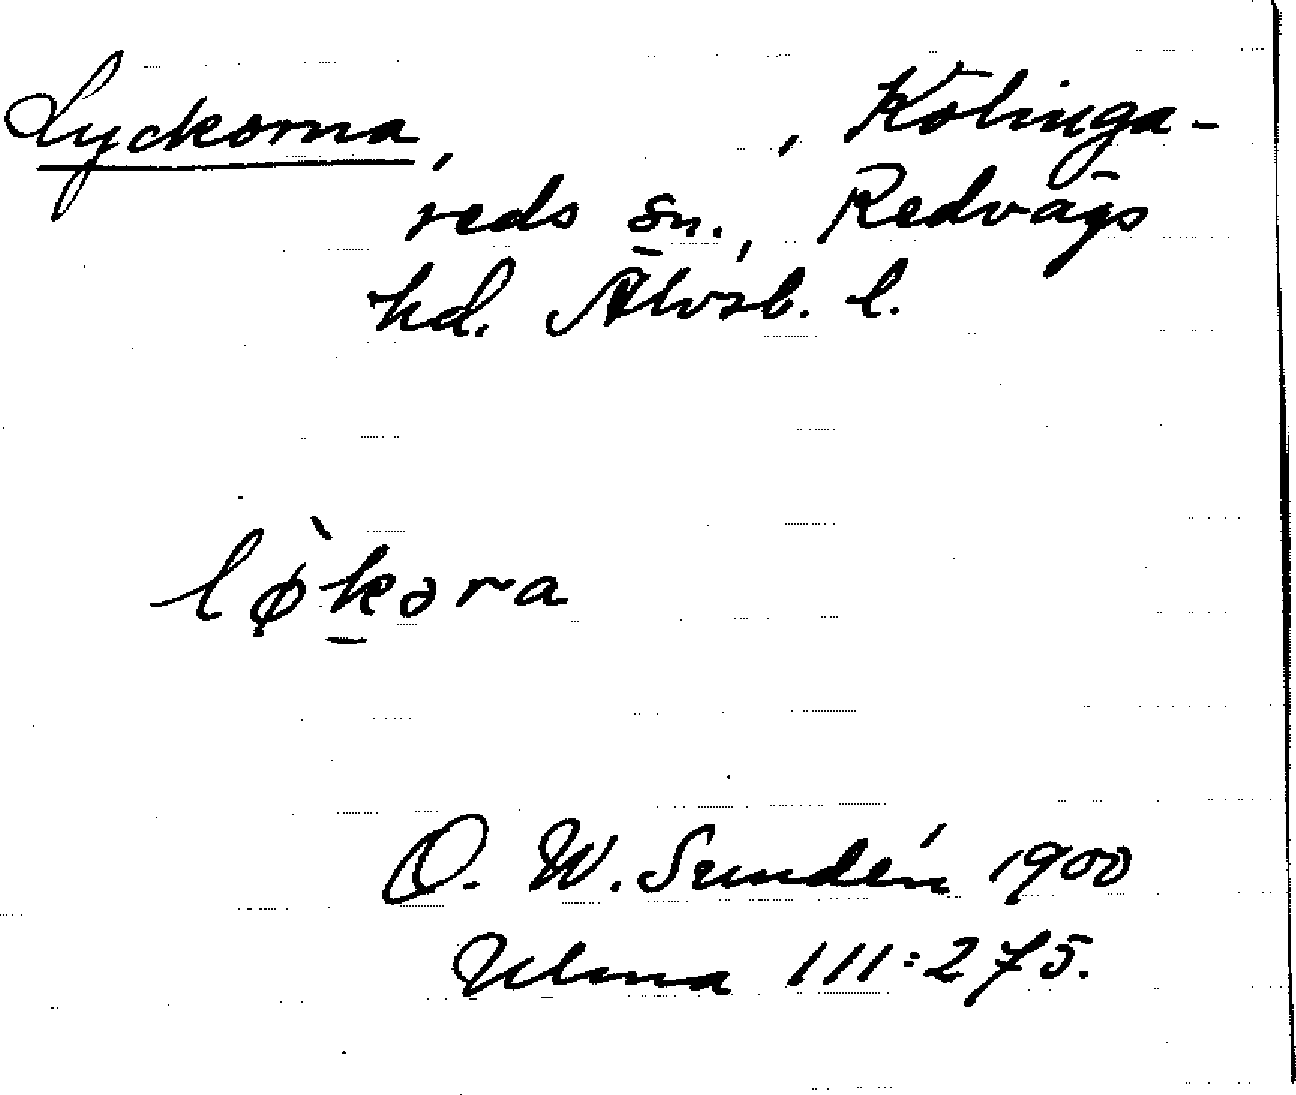 Lyckorna, , Kölinga-
reds sn., Redvägs
hd. Älvsb. l.
lø̀kəra
O. W. Sundén 1900
Ulma 111:275.